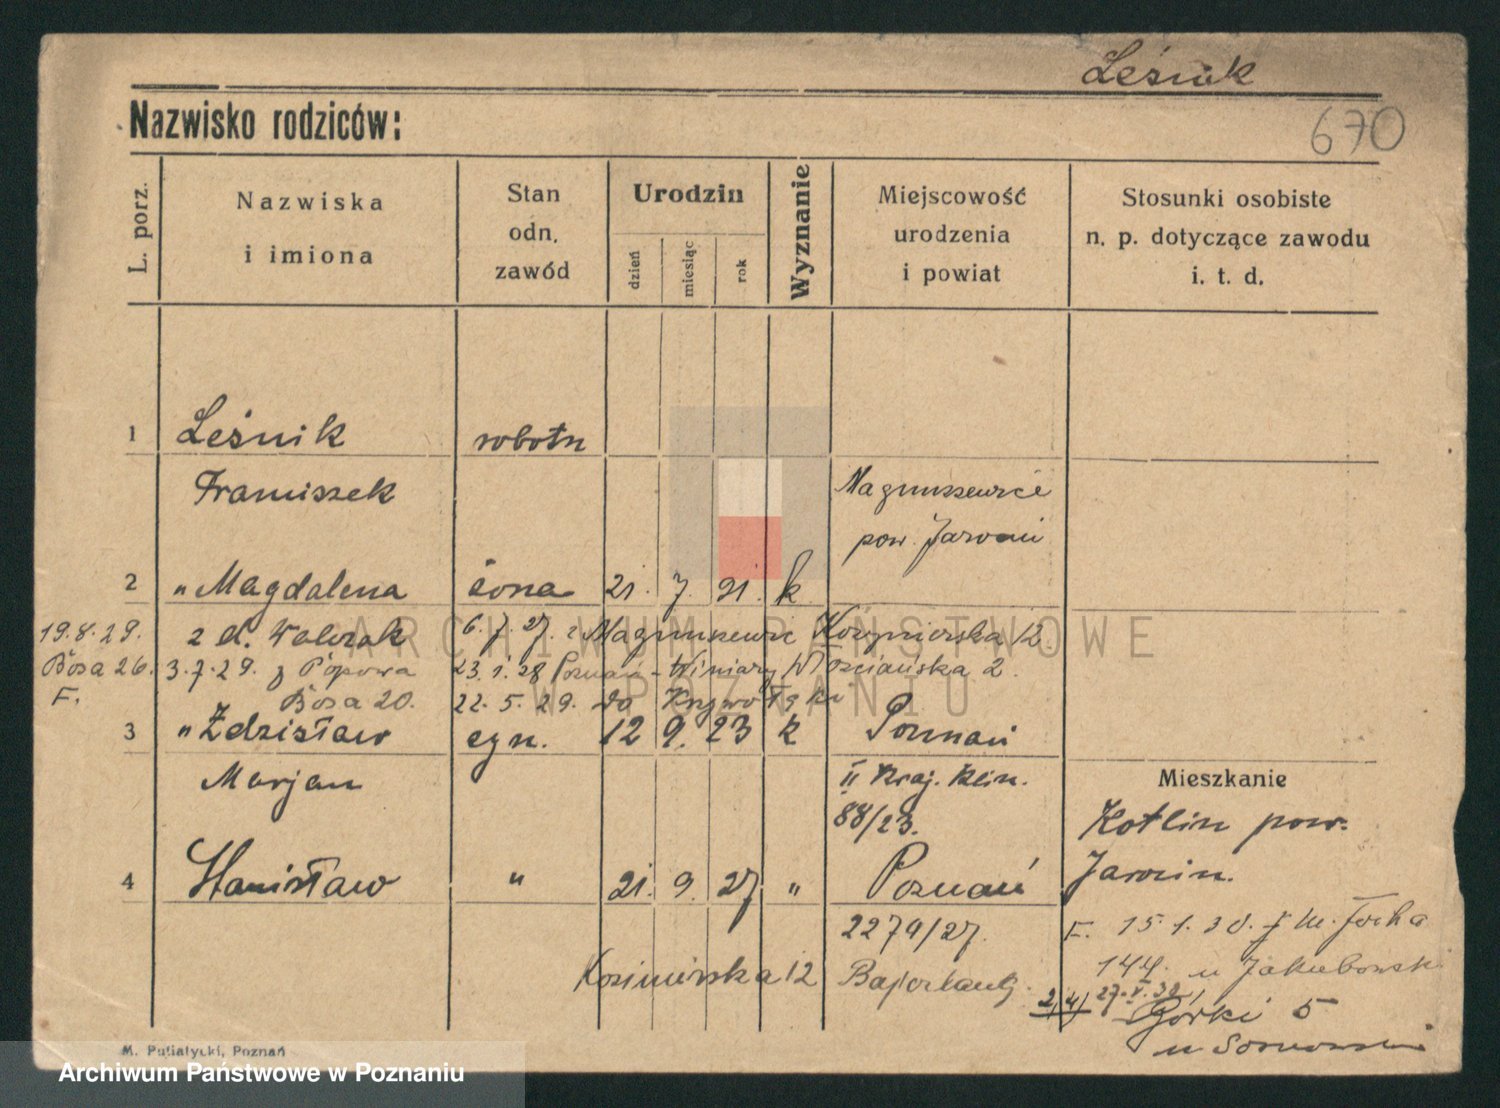 Leśnik
Nazwisko rodziców:
670
L. porz.
Nazwiska
i imiona
Stan
odn.
zawód
Urodzin
dzień
miesiąc
rok
Wyznanie
Miejscowość
urodzenia
i powiat
Stosunki osobiste
n. p. dotyczące zawodu
i. t. d.
1 Leśnik robotn
Franciszek Magnuszewice
pow. Jarocin
2 „ Magdalena żona 21. 7. 91. k
19.8.29. z d. Walczak 6. 7. 27. z Magnuszewic 12
Bosa 26. 3.7.29. z Popowa 23. 1. 28 Poznań - Winiary Włościańska 2.
F. Bosa 20. 22. 5. 29. do
3 „ Zdzisław syn. 12 9. 23 k Poznań
Marjan II Kraj. Klin.
88/23.
Mieszkanie
Kotlin pow.
Jarocin.
4 Stanisław „ 21. 9. 27 „ Poznań
2279/27.
F. 15. 1. 30. f M. Focha
144. u Jakubowski
12
27. V. 32
Górki 5
u
M. Putiatycki, Poznań
ARCHIWUM PAŃSTWOWE
W POZNANIU
Archiwum Państwowe w Poznaniu